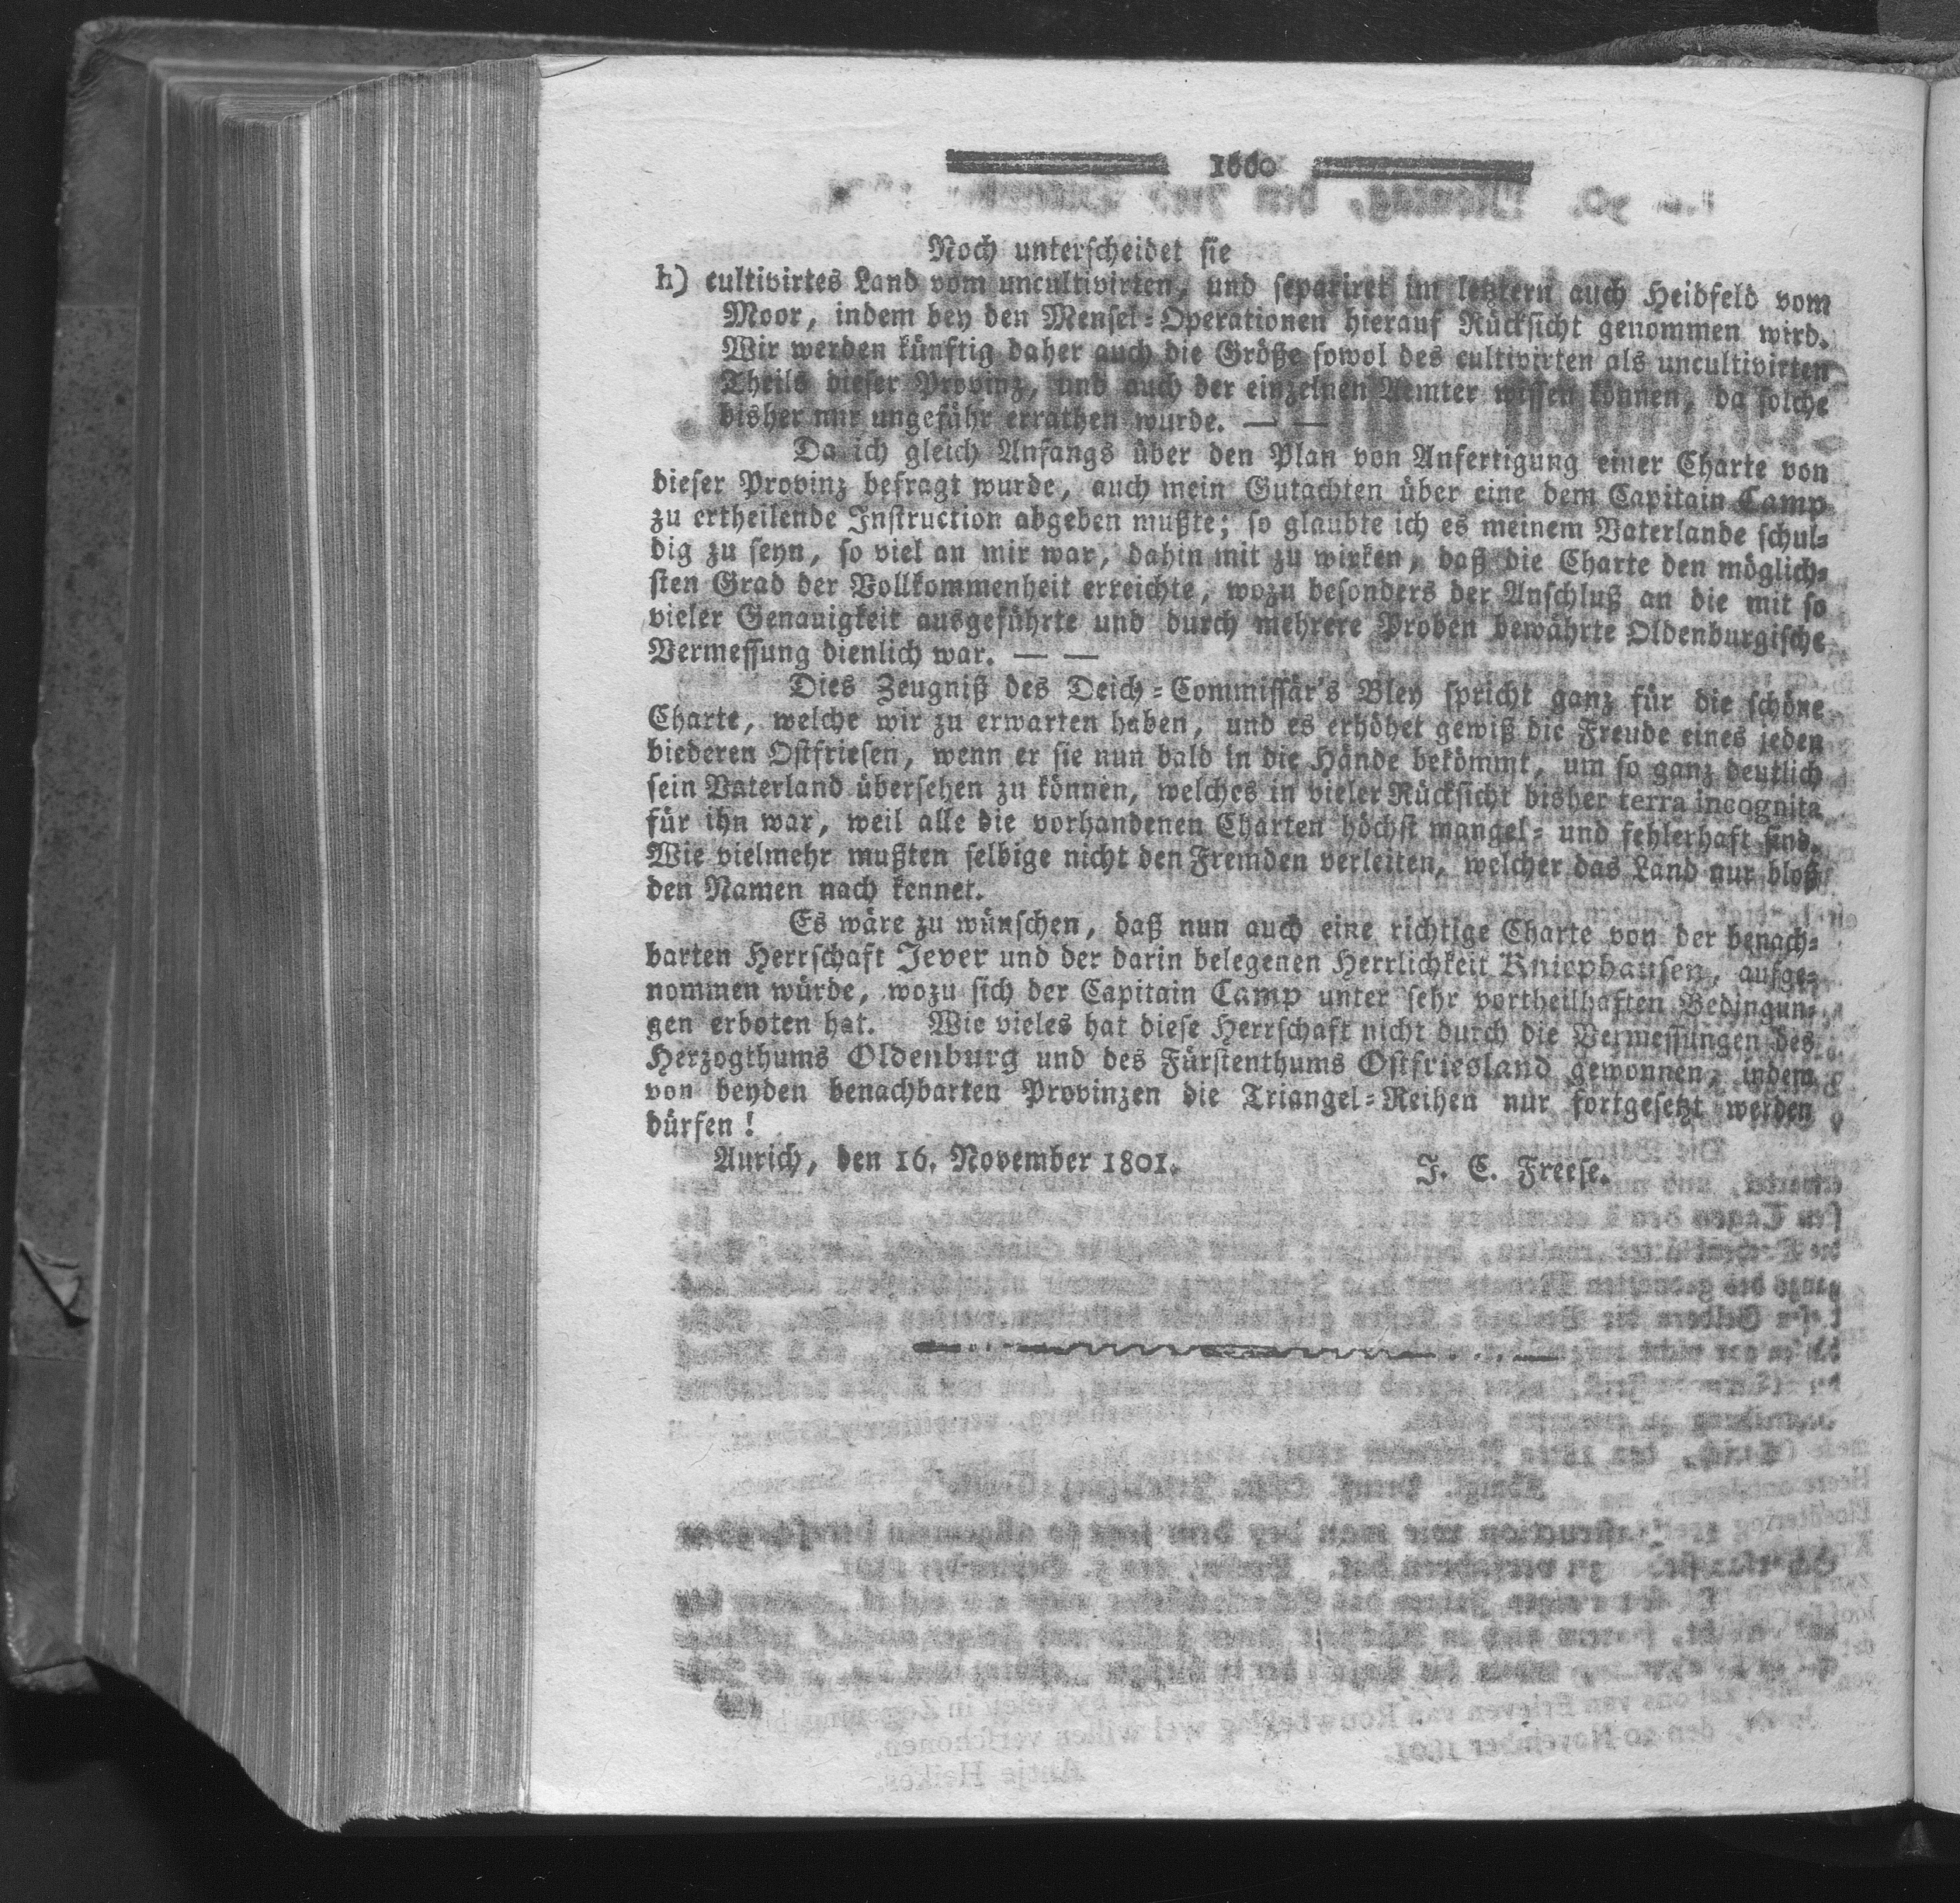 1660
Noch unterscheidet sie
h) cultivirtes Land vom uncultivirten, und separiret im letztern auch Heidfeld vom
Moor, indem bey den Mensel=Operationen hierauf Rücksicht genommen wird.
Wir werden künftig daher auch die Größe sowol des cultivirten als uncultivirten
Theils dieser Provinz, und auch der einzelnen Aemter wissen können, da solche
bisher nur ungefähr errathen wurde. — —
Da ich gleich Anfangs über den Plan von Anfertigung einer Charte von
dieser Provinz befragt wurde, auch mein Gutachten über eine dem Capitain Camp
zu ertheilende Instruction abgeben mußte; so glaubte ich es meinem Vaterlande schul=
dig zu seyn, so viel an mir war, dahin mit zu wirken, daß die Charte den möglich=
sten Grad der Vollkommenheit erreichte, wozu besonders der Anschluß an die mit so
vieler Genauigkeit ausgeführte und durch mehrere Proben bewährte Oldenburgische
Vermessung dienlich war. — —
Dies Zeugniß des Deich=Commissär's Bley spricht ganz für die schöne
Charte, welche wir zu erwarten haben, und es erhöhet gewiß die Freude eines jeden
biederen Ostfriesen, wenn er sie nun bald in die Hände bekömmt, um so ganz deutlich
sein Vaterland übersehen zu können, welches in vieler Rücksicht bisher terra incognita
für ihn war, weil alle die vorhandenen Charten höchst mangel= und fehlerhaft sind.
Wie vielmehr mußten selbige nicht den Fremden verleiten, welcher das Land nur bloß
den Namen nach kennet.
Es wäre zu wünschen, daß nun auch eine richtige Charte von der benach=
barten Herrschaft Jever und der darin belegenen Herrlichkeit Kniephausen, aufge=
nommen würde, wozu sich der Capitain Camp unter sehr vortheilhaften Bedingun=
gen erboten hat. Wie vieles hat diese Herrschaft nicht durch die Vermessungen des
Herzogthums Oldenburg und des Fürstenthums Ostfriesland gewonnen, indem
von beyden benachbarten Provinzen die Triangel=Reihen nur fortgesetzt werden
dürfen!
Aurich, den 16. November 1801.
J. C. Freese.